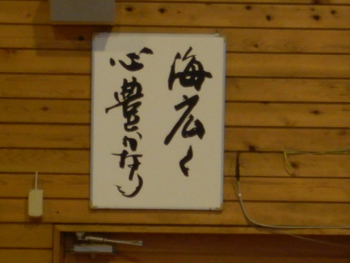 海広く
心豊かなり